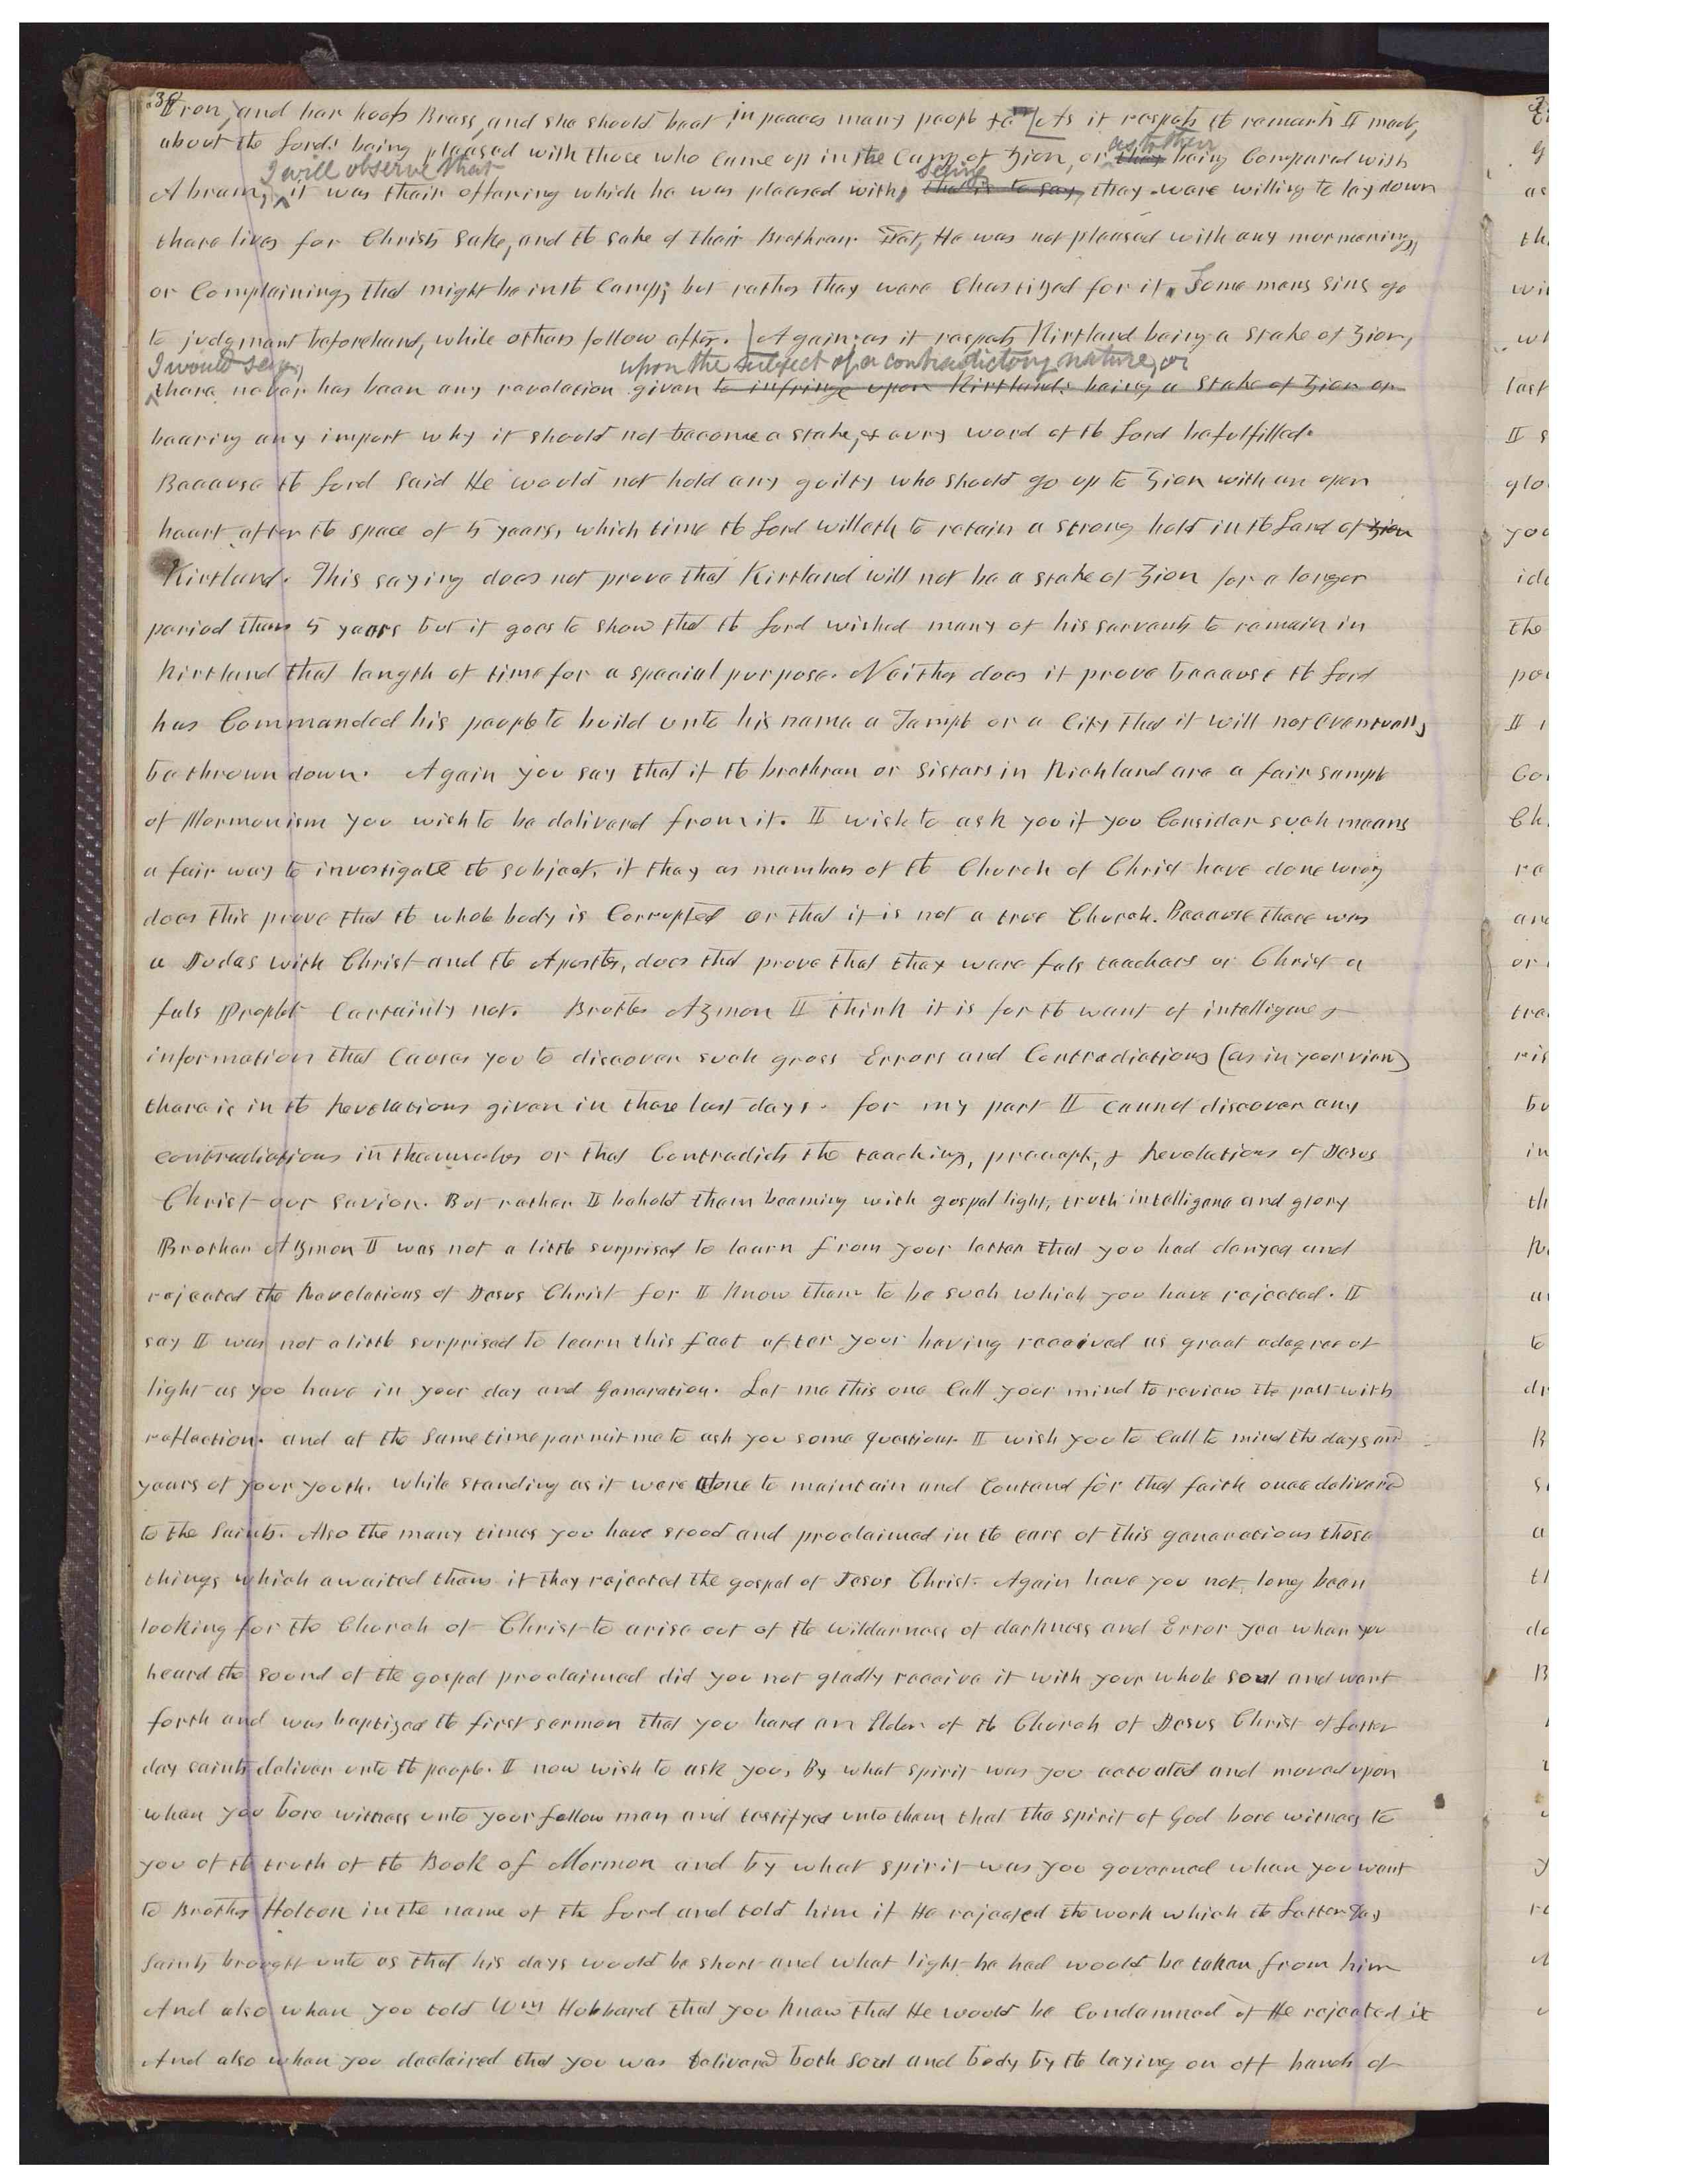 38
Iron, and har hoofs Brass, and she should beat in peaces many peopl &c As it respects the remark I made,
about the Lords being pleased with those who came up in the Camp of Zion, or they as to their being Compared with
Abram, I will observe that it was thair offering which he was pleased with, that is to say, seeing thay ware willing to lay down
thare lives for Christs sake, and the sake of thair Brethren. Yet, He was not pleased with any mormoring,
or Complaining, that might be in the Camp; but rather thay ware Chastized for it. Some mens sins go
to judgment beforehand, while others follow after. Again, as it respects Kirtland being a Stake of Zion,
I would say, thare never has been any revelation given to infringe upon Kirtlands being a Stake of Zion or upon the subject of a contradictory nature, or
bearing any import why it should not become a stake, & every word of the Lord be fulfilled.
Because the Lord said He would not hold any guilty who should go up to Zion with an open
heart after the space of 5 years, which time the Lord willeth to retain a strong hold in the Land of Zion
Kirtland. This saying does not prove that Kirtland will not be a stake of Zion for a longer
period than 5 years but it goes to show that the Lord wished many of his servants to remain in
Kirtland that length of time for a special purpose. Neither does it prove because the Lord
has Commanded his people to build unto his name a Templ or a City that it will not eventually
be thrown down. Again you say that if the brethren or sisters in Richland are a fair sample
of Mormonism you wish to be delivered from it. I wish to ask you if you Consider such means
a fair way to investigate the subject, if thay as members of the Church of Christ have done wrong
does this prove that the whole body is Corrupted or that it is not a true Church. Because thare was
a Judas with Christ and the Apostles, does that prove that thay ware fals teachers or Christ a
fals Prophet Certainly not. Brother Azmon I think it is for the want of intelligence &
information that Causes you to discover such gross Errors and Contradictions (as in your view)
thare is in the Revelations given in these last days. for my part I cannot discover any
contradictions in themselves or that Contradicts the teachings, precepts, & Revelations of Jesus
Christ our savior. But rather I behold them beaming with gospel light, truth intelligence and glory
Brother Azmon I was not a little surprised to learn from your letter that you had denyed and
rejected the Revelations of Jesus Christ for I know them to be such which you have rejected. I
say I was not a little surprised to learn this fact after your having received as great a degree of
light as you have in your day and Generation. Let me this once Call your mind to review the past with
reflection. and at the same time permit me to ask you some questions. I wish you to Call to mind the days and
years of your youth. while standing as it were alone to maintain and Contend for that faith once delivered
to the Saints. Also the many times you have stood and proclaimed in the ears of this generations those
things which awaited them if they rejected the gospel of Jesus Christ. Again have you not long been
looking for the Church of Christ to arise out of the wilderness of darkness and Error yea when you
heard the sound of the gospel proclaimed did you not gladly receive it with your whole soul and want
forth and was baptized the first sermon that you hard an Elder of the Church of Jesus Christ of Latter
day saints deliver unto the people. I now wish to ask you, By what spirit was you actuated and moved upon
when you bore witness unto your fellow man and testifyed unto them that the spirit of God bore witness to
you of the truth of the Book of Mormon and by what spirit was you governed when you want
to Brother Holton in the name of the Lord and told him if He rejected the work which the Latter Day
Saints brought unto us that his days would be short and what light he had would be taken from him
And also when you told Wm Hubbard that you knew that He would be Condemned if He rejected it
And also when you declaired that you was delivered both soul and body by the laying on off hands of